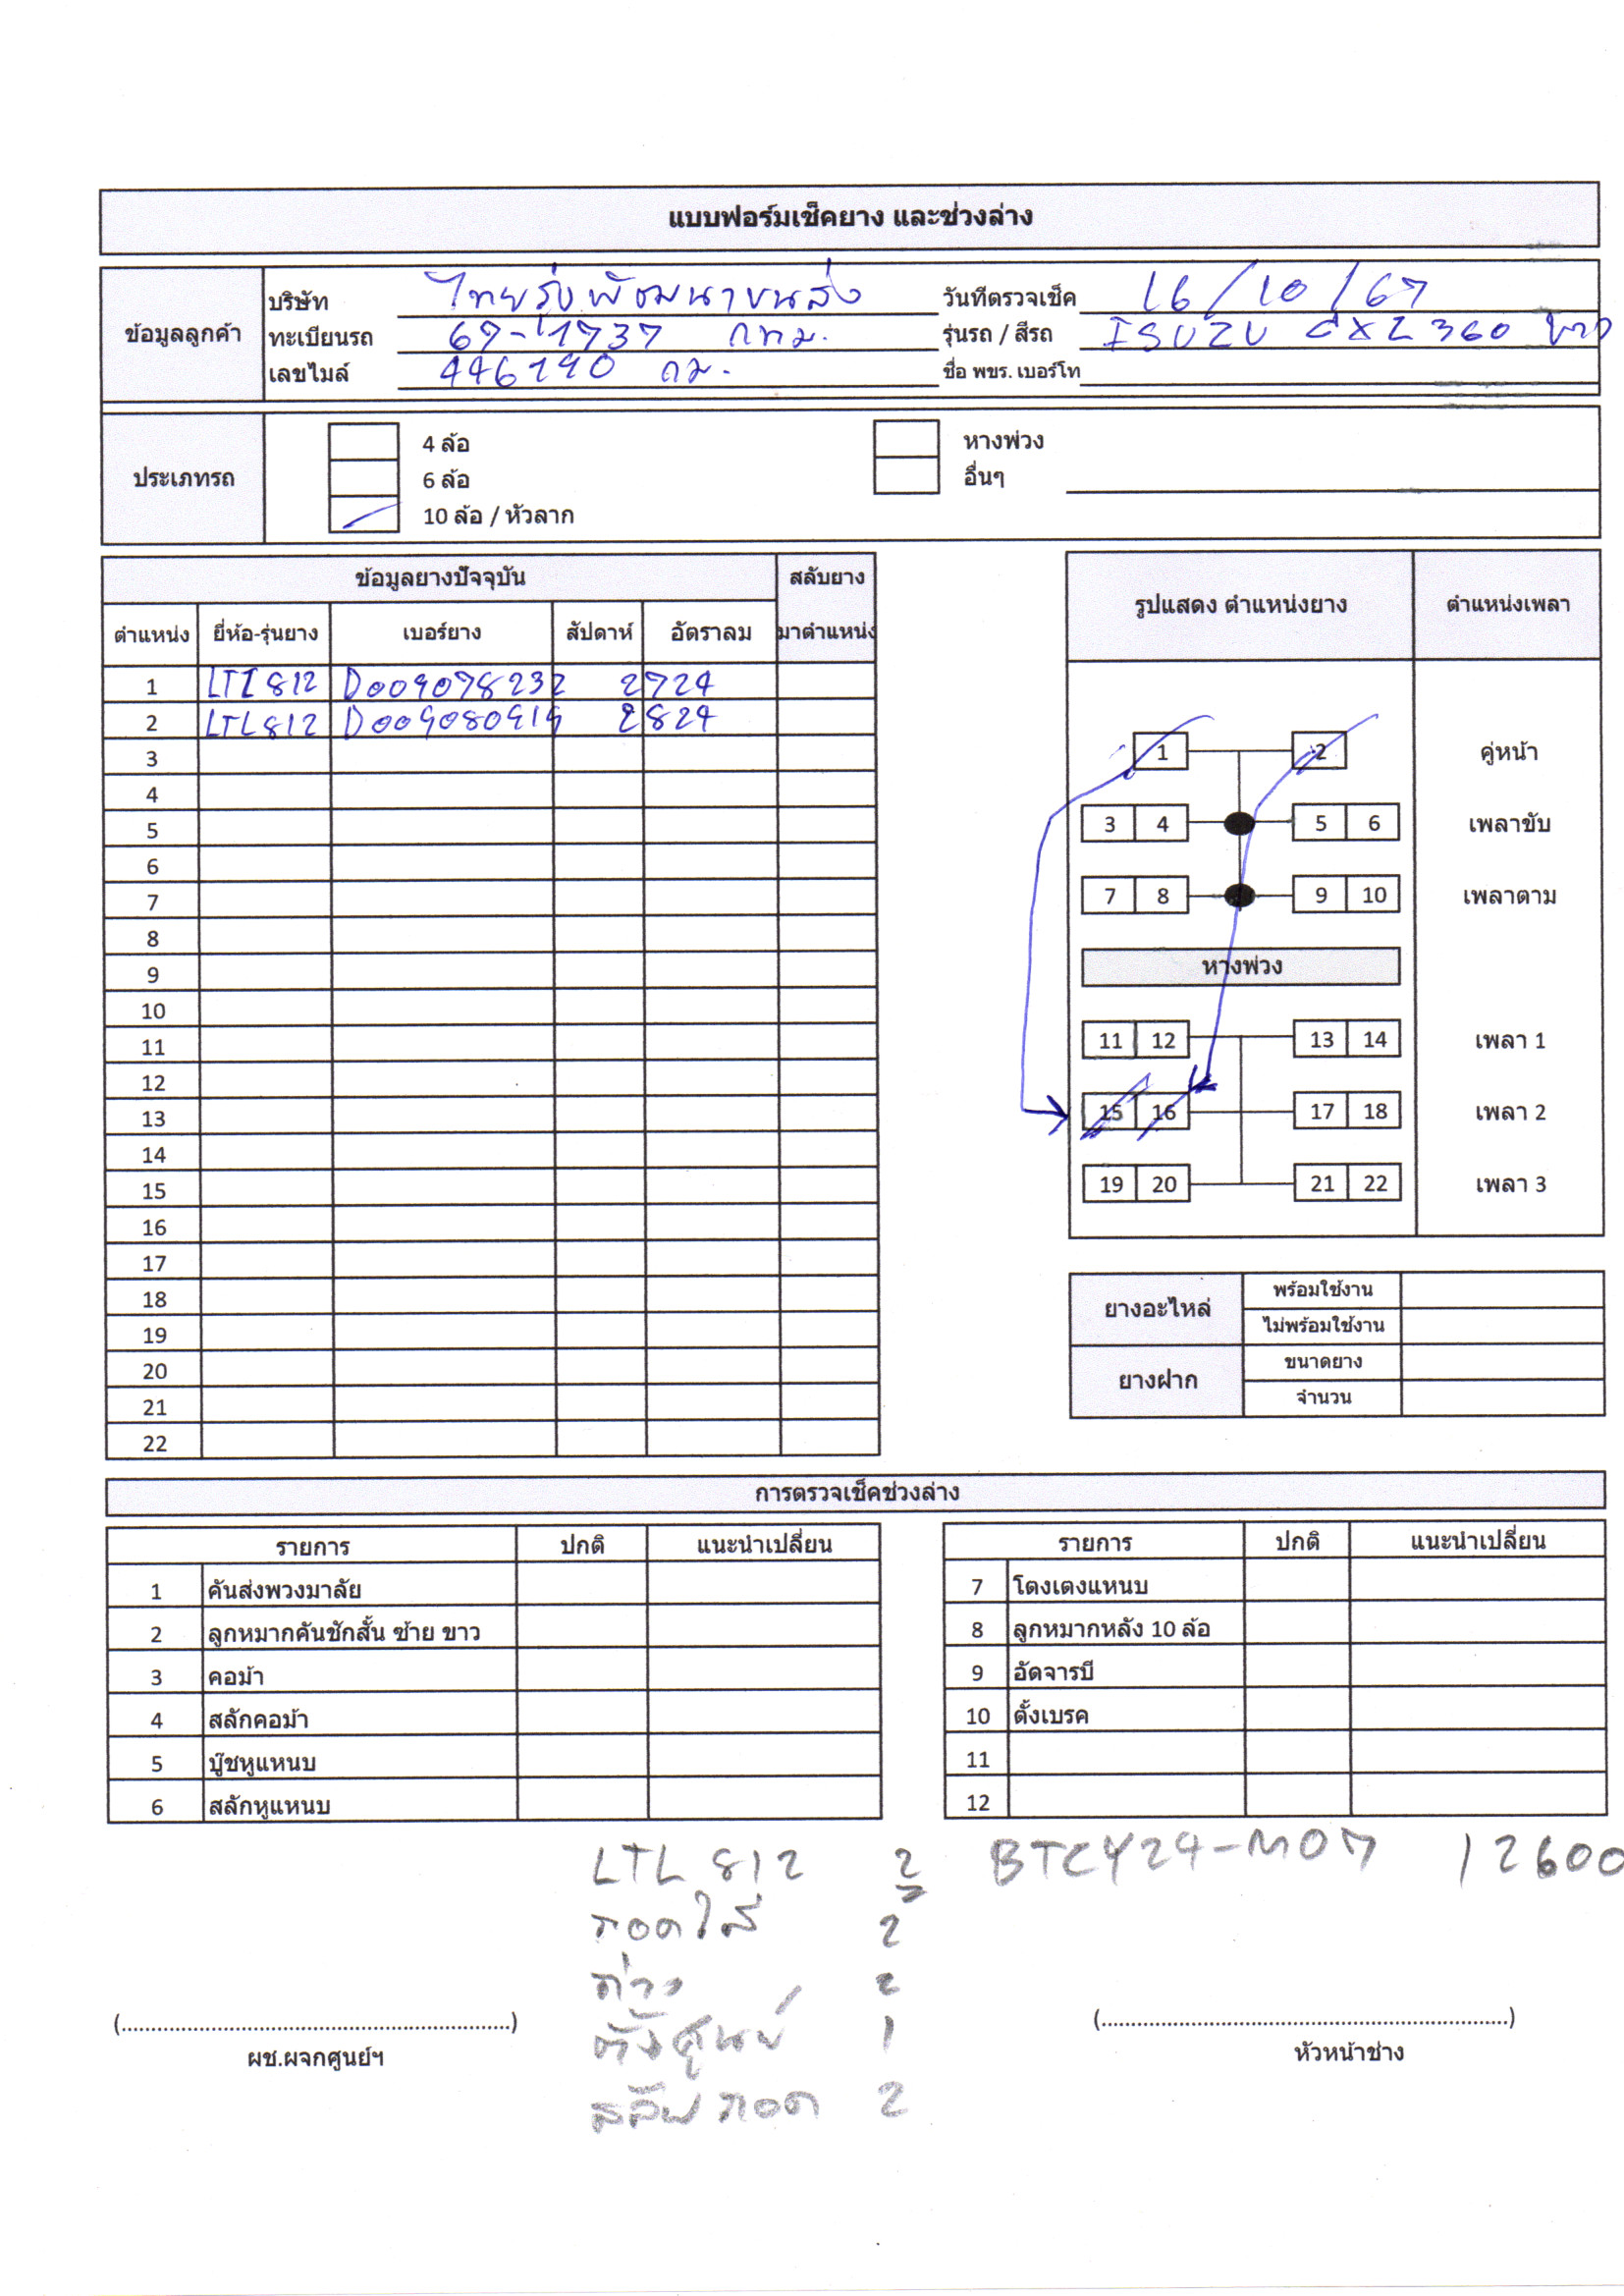 แบบฟอร์มเช็คยาง และช่วงล่าง
ข้อมูลลูกค้า
บริษัท ไทยรุ่งพัฒนาขนส่ง วันที่ตรวจเช็ค 16/10/67
ทะเบียนรถ 69-1737 กทม. รุ่นรถ / สีรถ ISUZU 360 ขาว
เลขไมล์ 446190 กม. ชื่อ พขร. เบอร์โท
ประเภทรถ
4 ล้อ หางพ่วง
6 ล้อ อื่นๆ
10 ล้อ / หัวลาก
ข้อมูลยางปัจจุบัน สลับยาง
ตำแหน่ง ยี่ห้อ-รุ่นยาง เบอร์ยาง สัปดาห์ อัตราลม มาตำแหน่ง
1 LTL812 D009078232 2724
2 LTL812 D009080919 2824
3
4
5
6
7
8
9
10
11
12
13
14
15
16
17
18
19
20
21
22
รูปแสดง ตำแหน่งยาง ตำแหน่งเพลา
1 2 คู่หน้า
3 4 5 6 เพลาขับ
7 8 9 10 เพลาตาม
หางพ่วง
11 12 13 14 เพลา 1
15 16 17 18 เพลา 2
19 20 21 22 เพลา 3
ยางอะไหล่ พร้อมใช้งาน
ไม่พร้อมใช้งาน
ยางฝาก ขนาดยาง
จำนวน
การตรวจเช็คช่วงล่าง
รายการ ปกติ แนะนำเปลี่ยน
1 คันส่งพวงมาลัย
2 ลูกหมากคันชักสั้น ซ้าย ขาว
3 คอม้า
4 สลักคอม้า
5 บู๊ชหูแหนบ
6 สลักหูแหนบ
รายการ ปกติ แนะนำเปลี่ยน
7 โตงเตงแหนบ
8 ลูกหมากหลัง 10 ล้อ
9 อัดจารบี
10 ตั้งเบรค
11
12
LTL 812 2 BTCY24-M07 12600
ถอดใส่ 2
ถ่วง 2
ตั้งศูนย์ 1
สลับถอด 2
(....................................................................) (....................................................................)
ผช.ผจกศูนย์ฯ หัวหน้าช่าง